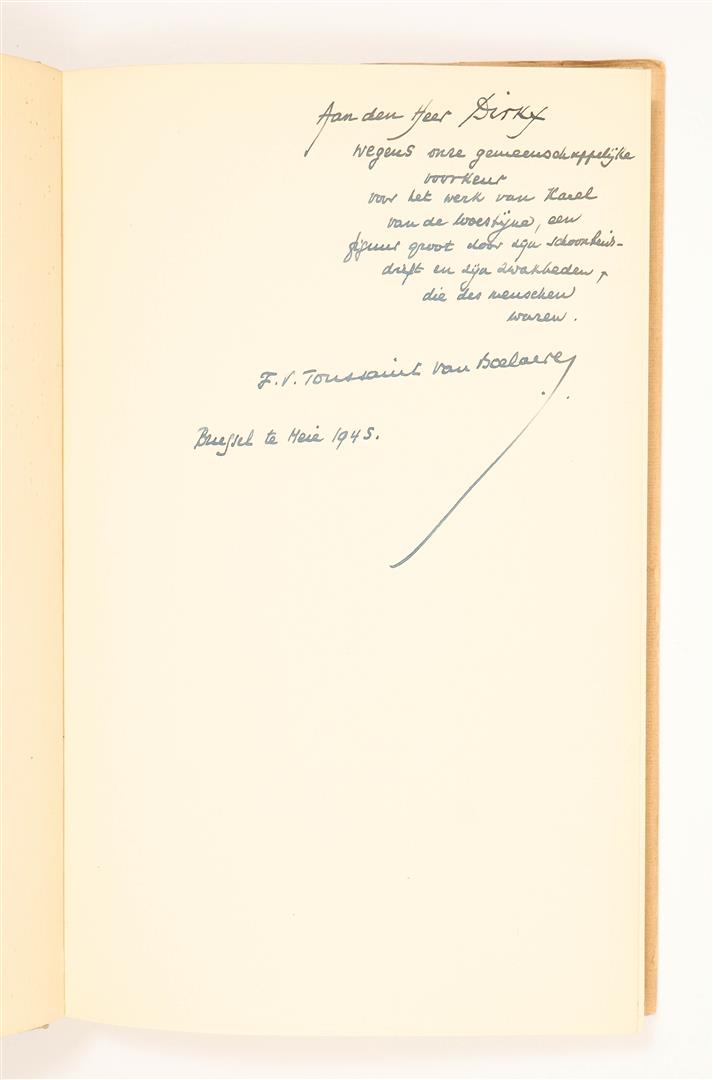 Aan den Heer Dirkx
wegens onze gemeenschappelijke
voorkeur
voor het werk van Karel
van de Woestijne, een
figuur groot door zijn schoonheids-
drift en zijn zwakheden,
die des menschen
waren.
F. V. Toussaint van Boelaere
Brussel te Meie 1945.